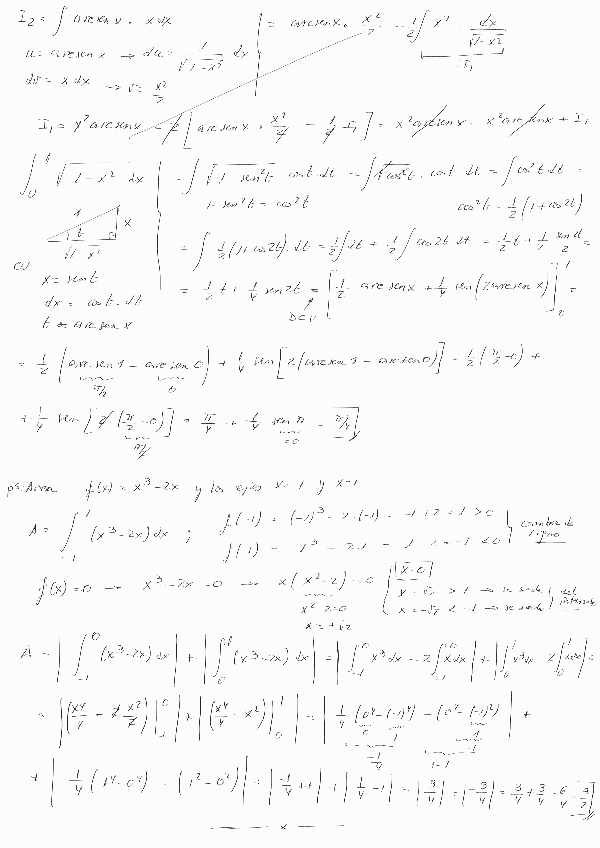 I₂ = ∫ arcsen x · x dx
u = arcsen x → du = 1/√(1-x²) dx
dv = x dx → v = x²/2
= arcsen x · x²/2 - 1/2 ∫ x² · dx/√(1-x²)
I₁
I₁ = x² arcsen x - 2 [arcsen x · x²/2 - 1/2 I₁] = x² arcsen x - x² arcsen x + I₁
∫₀¹ √(1-x²) dx
1 t x
√(1-x²)
CV
x = sen t
dx = cos t · dt
t = arcsen x
= ∫ √(1-sen²t) cos t dt = ∫ √cos²t · cos t dt = ∫ cos²t dt =
1 - sen²t = cos²t cos²t = 1/2 (1+cos2t)
= ∫ 1/2 (1+cos2t) · dt = 1/2 ∫ dt + 1/2 ∫ cos2t dt = 1/2 t + 1/2 sen2t/2 =
= 1/2 t + 1/4 sen2t = [1/2 · arcsen x + 1/4 sen(2 arcsen x)]₀¹ =
DCV
= 1/2 (arcsen 1 - arcsen 0) + 1/4 sen[2(arcsen 1 - arcsen 0)] = 1/2 (π/2 - 0) +
π/2 0
+ 1/4 sen[2 · (π/2 - 0)] = π/4 + 1/4 sen π = π/4
π/2 =0
Area f(x) = x³ - 2x y los ejes x=-1 y x=1
A = ∫₋₁¹ (x³-2x) dx ; f(-1) = (-1)³ - 2·(-1) = -1+2 = 1 > 0
f(1) = 1³ - 2·1 = 1-2 = -1 < 0
cambio de signo
f(x)=0 → x³-2x = 0 → x(x²-2) = 0 x=0
x = √2 > 1 → se sale
x = -√2 < -1 → se sale
del intervalo
x²-2=0
x = ±√2
A = |∫₋₁⁰ (x³-2x) dx| + |∫₀¹ (x³-2x) dx| = |∫₋₁⁰ x³ dx - 2 ∫₋₁⁰ x dx| + |∫₀¹ x³ dx - 2 ∫₀¹ x dx| =
= |(x⁴/4 - 2 x²/2)|₋₁⁰| + |(x⁴/4 - x²)|₀¹| = |1/4 (0⁴-(-1)⁴) - (0²-(-1)²)| +
0 1 0 1
-1/4 -1
+ |1/4 (1⁴-0⁴) - (1²-0²)| = |-1/4 + 1| + |1/4 - 1| = |3/4| + |-3/4| = 3/4 + 3/4 = 6/4 = 3/2
x